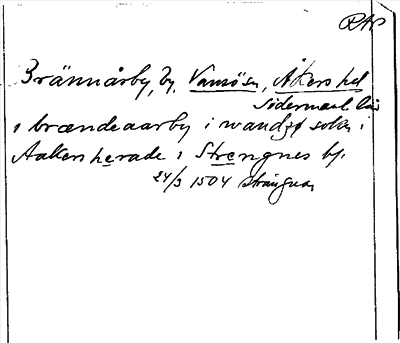 RAP
Brännårby, by, Vansö sn, Åkers hd
Södermanl. län
i brændeaarby i wandzø sokn i
Aakers herade i Strengnes bp.
24/3 1504 Strängnäs